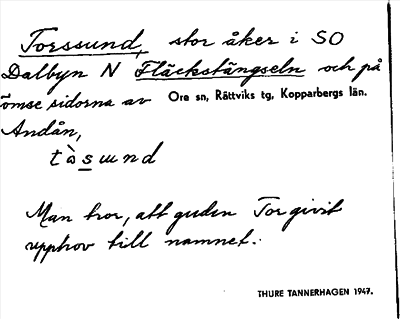 Torssund, stor åker i SO
Dalbyn N Fläckstängseln och på
ömse sidorna av Ore sn, Rättviks tg, Kopparbergs län.
Andån,
tὰsɯnd
Man tror, att guden Tor givit
upphov till namnet.
THURE TANNERHAGEN 1947.